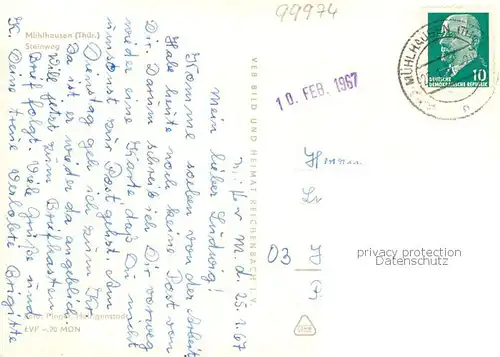 99974
Mühlhausen (Thür.)
Steinweg
M. d. 25.1.67
Mein lieber Ludwig!
Komme soeben von der Arbeit.
Habe heute noch keine Post von
Dir. Darum schreib ich Dir vorweg
wieder eine Karte daß Du nicht
umsonst zur Post gehst. Am
Dienstag geh ich zum
Da ist er wieder da angeblich.
Will jetzt zum Briefkasten.
Brief folgt. Viele Grüße und
K. Deine treue Verlobte Brigitte
EVP -.20 MDN
VEB BILD UND HEIMAT REICHENBACH I. V.
10. FEB. 1967
MÜHLHAUSEN (THÜR)
DEUTSCHE
DEMOKRATISCHE REPUBLIK
10
Herrn
03
privacy protection
Datenschutz